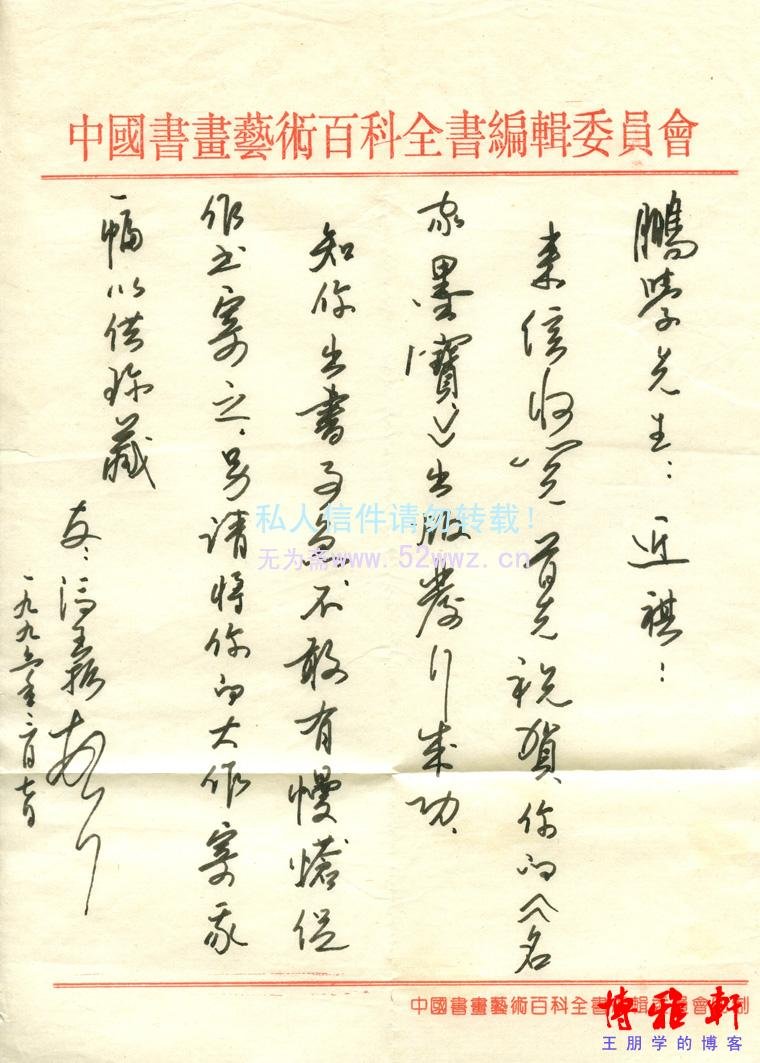 中國書畫藝術百科全書編輯委員會
鵬學先生：近祺！
来信收覽首先祝賀你的《名
家墨寶》出版發行成功、
知你出書事急不敢有慢愴促
作书寄之、另请將你的大作寄我
一幅以供珍藏
友：冯玉振
一九九六年二月七日
私人信件请勿转载！
无为斋www.52wwz.cn
中國書畫藝術百科全書編輯委員會制
博雅軒
王朋学的博客